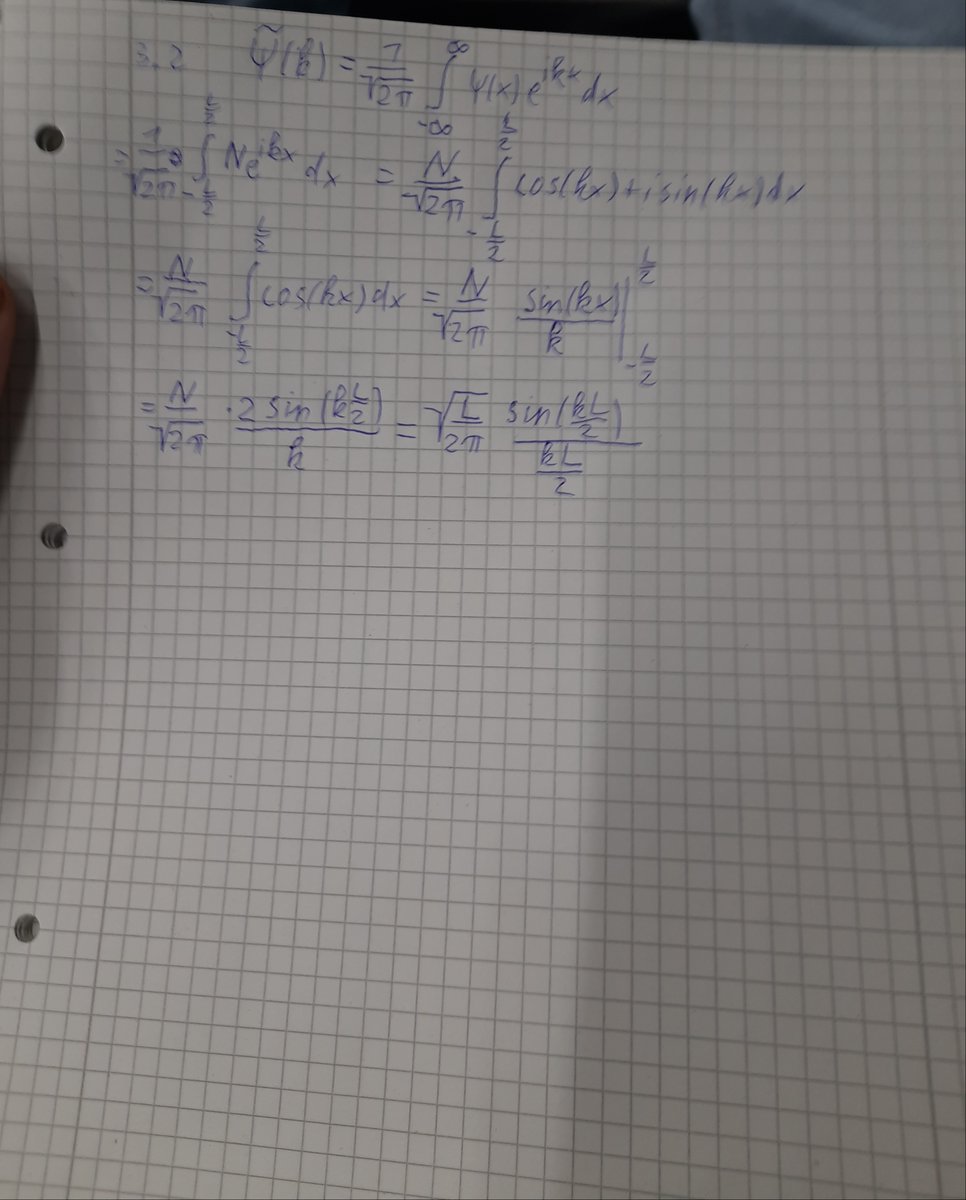 3.2 ψ̃(k) = 1/√2π ∫_{-∞}^{∞} ψ(x) e^{ikx} dx
= 1/√2π ∫_{-L/2}^{L/2} N e^{ikx} dx = N/√2π ∫_{-L/2}^{L/2} cos(kx) + i sin(kx) dx
= N/√2π ∫_{-L/2}^{L/2} cos(kx) dx = N/√2π sin(kx)/k |_{-L/2}^{L/2}
= N/√2π · 2 sin(k L/2)/k = √(L/2π) sin(kL/2)/(kL/2)